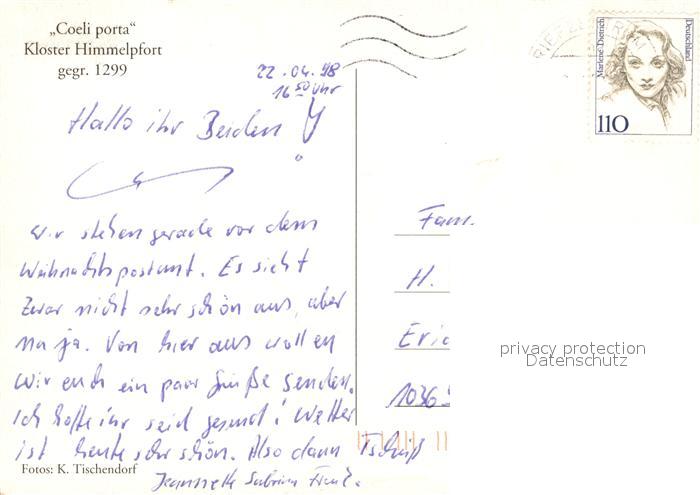 „Coeli porta“
Kloster Himmelpfort
gegr. 1299
22.04.98
16 50 Uhr
Hallo ihr Beiden!
Wir stehen gerade vor dem
Weihnachtspostamt. Es sieht
zwar nicht sehr schön aus, aber
na ja. Von hier aus wollen
wir euch ein paar Grüße senden.
Ich hoffe ihr seid gesund! Wetter
ist heute sehr schön. Also dann Tschüß
Jeannette Sabrina
Fotos: K. Tischendorf
Marlene Dietrich
Deutschland
110
Fam.
H.
Eric
1036
privacy protection
Datenschutz